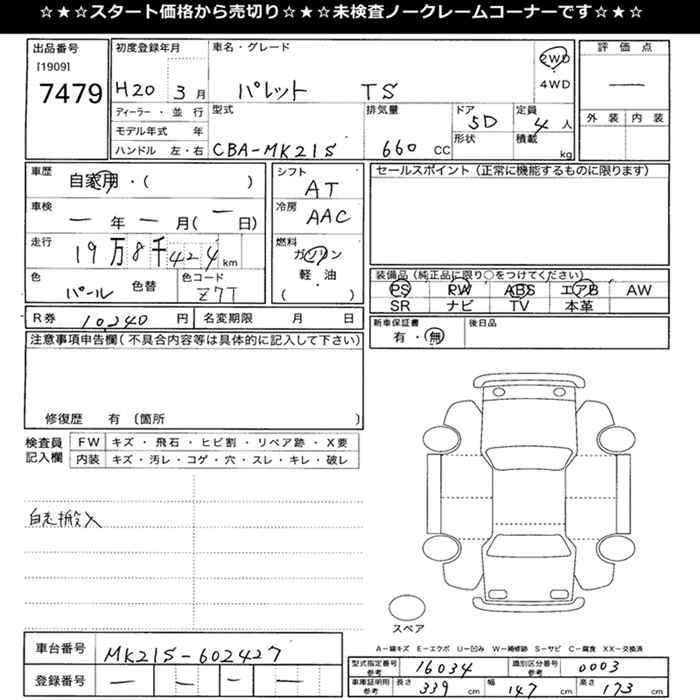 ☆★☆★スタート価格から売切り☆★☆★未検査ノークレームコーナーです☆★☆
出品番号
[1909]
7479
初度登録年月
H20 3月
ディーラー・並行
モデル年式 年
ハンドル 左・右
車名・グレード
パレット TS
2WD
4WD
型式
CBA-MK21S
排気量
660 CC
ドア
5D
形状
定員
4人
積載
kg
評価点
―
外装 内装
車歴
自家用・( )
車検
― 年 ― 月( ― 日)
走行
19万8千424km
色
パール 色替
色コード
Z7T
シフト
AT
冷房
AAC
燃料
ガソリン
軽・油
( )
セールスポイント(正常に機能するものに限ります)
装備品(純正品に限り○をつけてください)
PS PW ABS エアB AW
SR ナビ TV 本革
R券 10,240 円 名変期限 月 日
新車保証書
有・無
後日品
注意事項申告欄(不具合内容等は具体的に記入して下さい)
修復歴 有 〔箇所 〕
検査員
記入欄
FW キズ・飛石・ヒビ割・リペア跡・X要
内装 キズ・汚レ・コゲ・穴・スレ・キレ・破レ
自走搬入
スペア
A-線キズ E-エクボ U-凹み W-補修跡 S-サビ C-腐食 XX-交換済
車台番号 MK21S-602427
登録番号 ― ― - ―
型式指定番号
参考
16034
識別区分番号
参考
0003
車庫証明用
参考
長さ 339 cm 幅 147 cm 高さ 173 cm